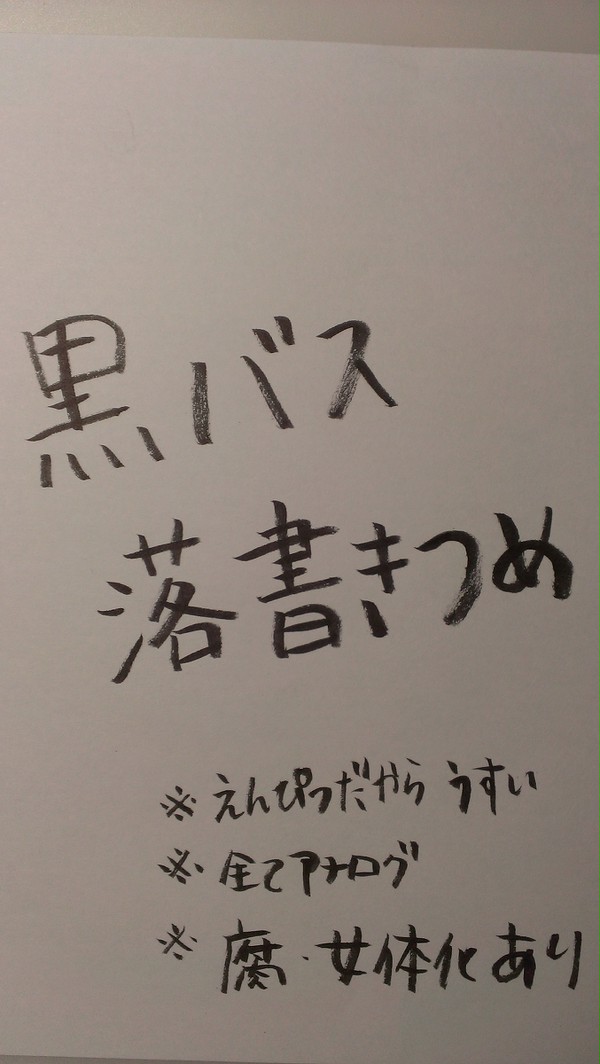 黒バス
落書きつめ
※えんぴつだからうすい
※全てアナログ
※腐・女体化あり